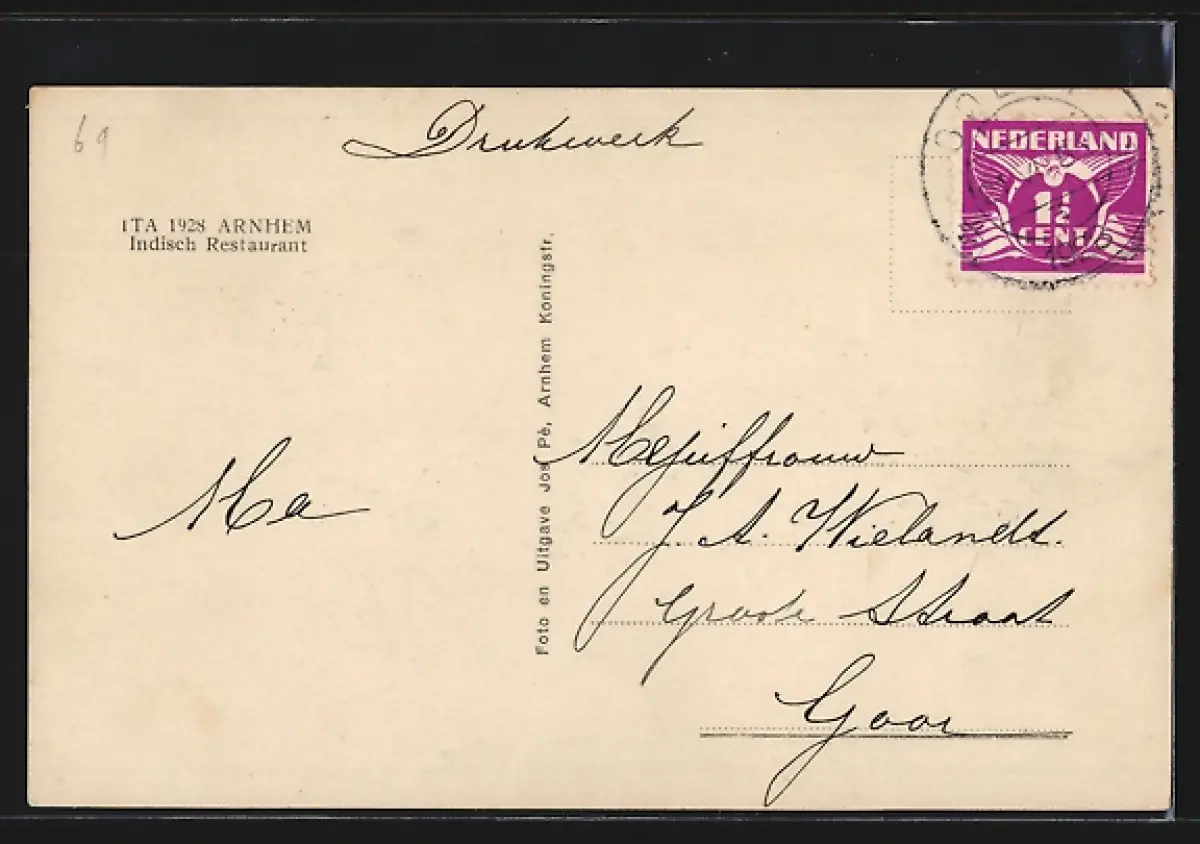 69
Drukwerk
ITA 1928 ARNHEM
Indisch Restaurant
NEDERLAND
1½
CENT
Foto en Uitgave Jos Pé, Arnhem Koningstr.
Ma
Mejuffrouw
J. A. Wielandt.
Groote Straat
Goor